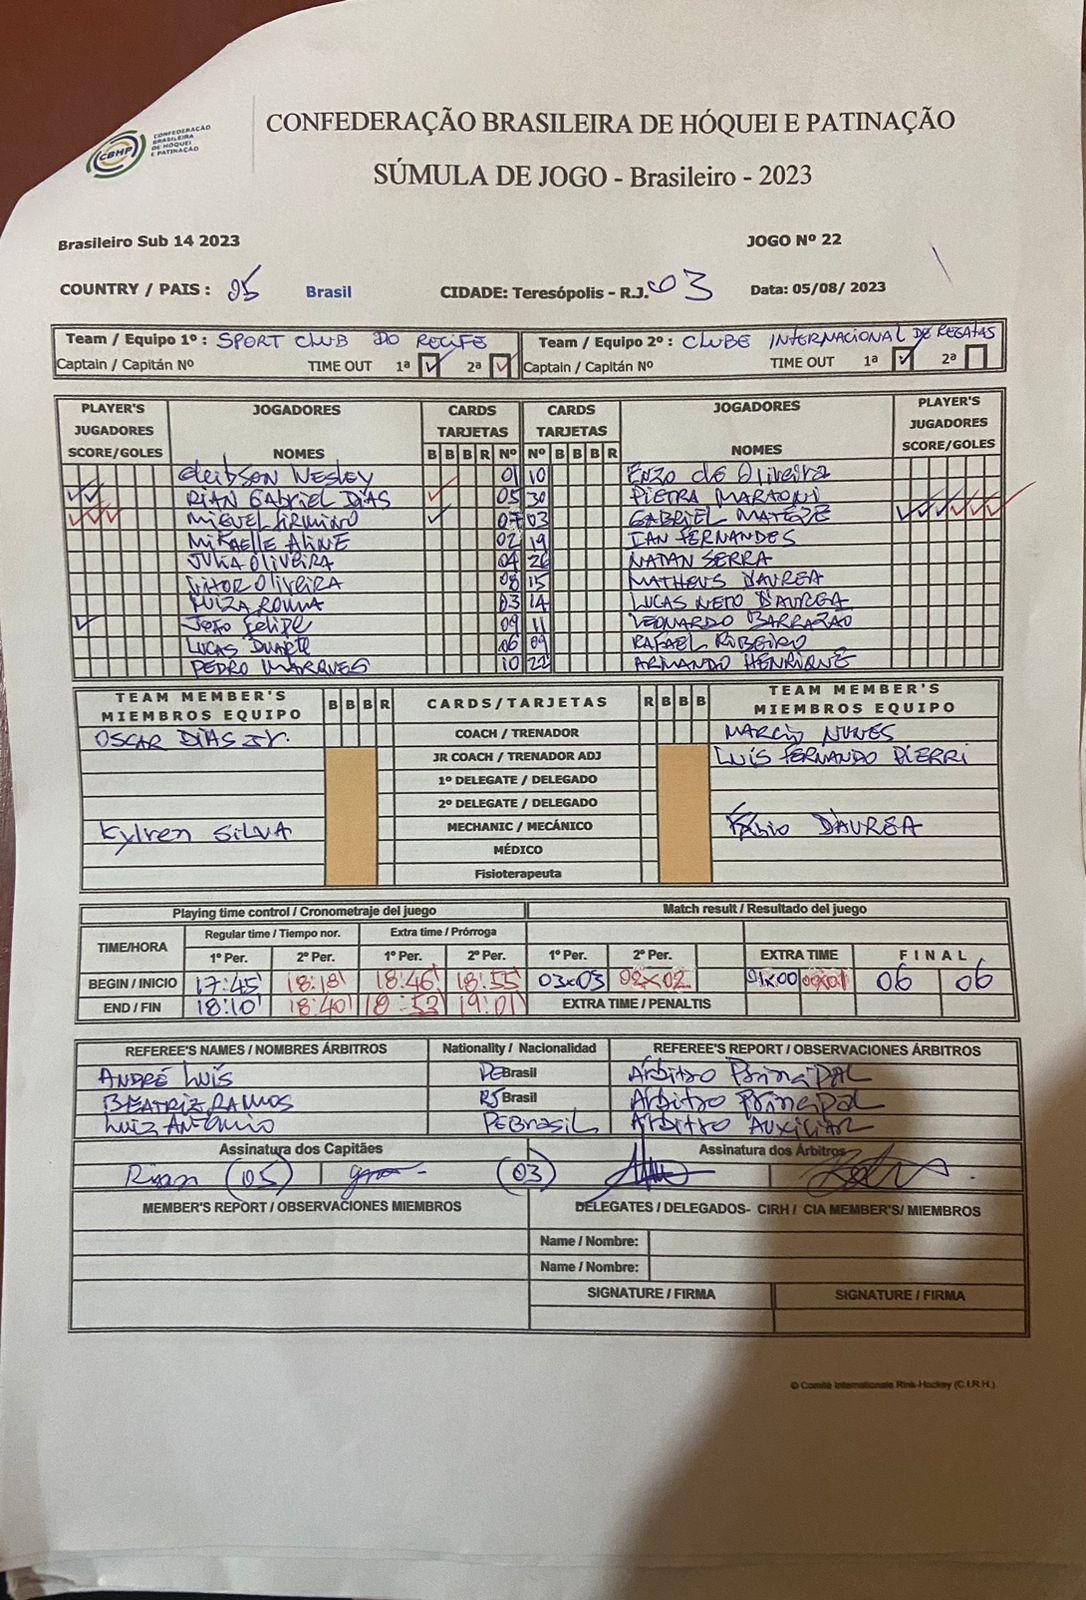 CBHP CONFEDERAÇÃO BRASILEIRA DE HÓQUEI E PATINAÇÃO
CONFEDERAÇÃO BRASILEIRA DE HÓQUEI E PATINAÇÃO
SÚMULA DE JOGO - Brasileiro - 2023
Brasileiro Sub 14 2023 JOGO Nº 22
COUNTRY / PAIS : 05 Brasil CIDADE: Teresópolis - R.J. 03 Data: 05/08/ 2023
Team / Equipo 1º : SPORT CLUB DO RECIFE Team / Equipo 2º : CLUBE INTERNACIONAL DE REGATAS
Captain / Capitán Nº TIME OUT 1ª 2ª Captain / Capitán Nº TIME OUT 1ª 2ª
PLAYER'S JOGADORES CARDS CARDS JOGADORES PLAYER'S
JUGADORES TARJETAS TARJETAS JUGADORES
SCORE/GOLES NOMES B B B R Nº Nº B B B R NOMES SCORE/GOLES
Cleibson Wesley 01 10 ENZO de Oliveira
RIAN GABRIEL DIAS 05 30 PIETRA
MIGUEL FIRMINO 07 03 GABRIEL
MIKAELLE ALINE 02 19 IAN FERNANDES
JULIA OLIVEIRA 04 26 NATAN SERRA
VITOR OLIVEIRA 08 15 MATHEUS D'AUREA
LUIZA 03 14 LUCAS NETO D'AUREA
João Felipe 09 11 LEONARDO
LUCAS Duarte 06 09 RAFAEL RIBEIRO
PEDRO MARQUES 10 ARMANDO HENRIQUE
TEAM MEMBER'S B B B R CARDS/TARJETAS R B B B TEAM MEMBER'S
MIEMBROS EQUIPO MIEMBROS EQUIPO
OSCAR DIAS Jr. COACH / TRENADOR MARCIO NUNES
JR COACH / TRENADOR ADJ LUÍS FERNANDO PIERRI
1º DELEGATE / DELEGADO
2º DELEGATE / DELEGADO
Kylren SILVA MECHANIC / MECÁNICO Fábio D'AUREA
MÉDICO
Fisioterapeuta
Playing time control / Cronometraje del juego Match result / Resultado del juego
TIME/HORA Regular time / Tiempo nor. Extra time / Prórroga
1º Per. 2º Per. 1º Per. 2º Per. 1º Per. 2º Per. EXTRA TIME FINAL
BEGIN / INICIO 17:45 18:18 18:46 18:55 03x03 02x02 01x00 00x01 06 06
END / FIN 18:10 18:40 18:53 19:01 EXTRA TIME / PENALTIS
REFEREE'S NAMES / NOMBRES ÁRBITROS Nationality / Nacionalidad REFEREE'S REPORT / OBSERVACIONES ÁRBITROS
ANDRÉ LUÍS PE Brasil Árbitro Principal
BEATRIZ RAMOS RJ Brasil Árbitro Principal
LUIZ ANTÔNIO PE Brasil Árbitro AUXILIAR
Assinatura dos Capitães Assinatura dos Árbitros
Rian (05) (03)
MEMBER'S REPORT / OBSERVACIONES MIEMBROS DELEGATES / DELEGADOS- CIRH / CIA MEMBER'S/ MIEMBROS
Name / Nombre:
Name / Nombre:
SIGNATURE / FIRMA SIGNATURE / FIRMA
© Comité Internationale Rink-Hockey (C.I.R.H.)